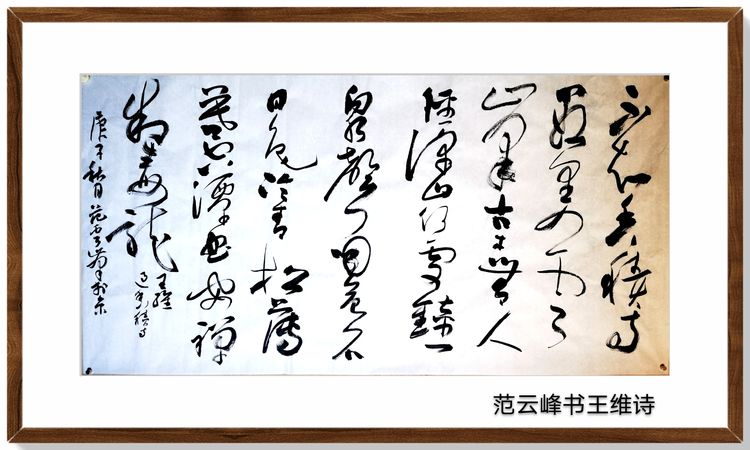 不知香積寺
數里入雲
峰古木無人
徑深山何處鐘
泉聲咽危石
日色冷青松薄
暮空潭曲安禪
制毒龍
王維
過香積寺
庚子秋月范雲峰書於京
范云峰书王维诗